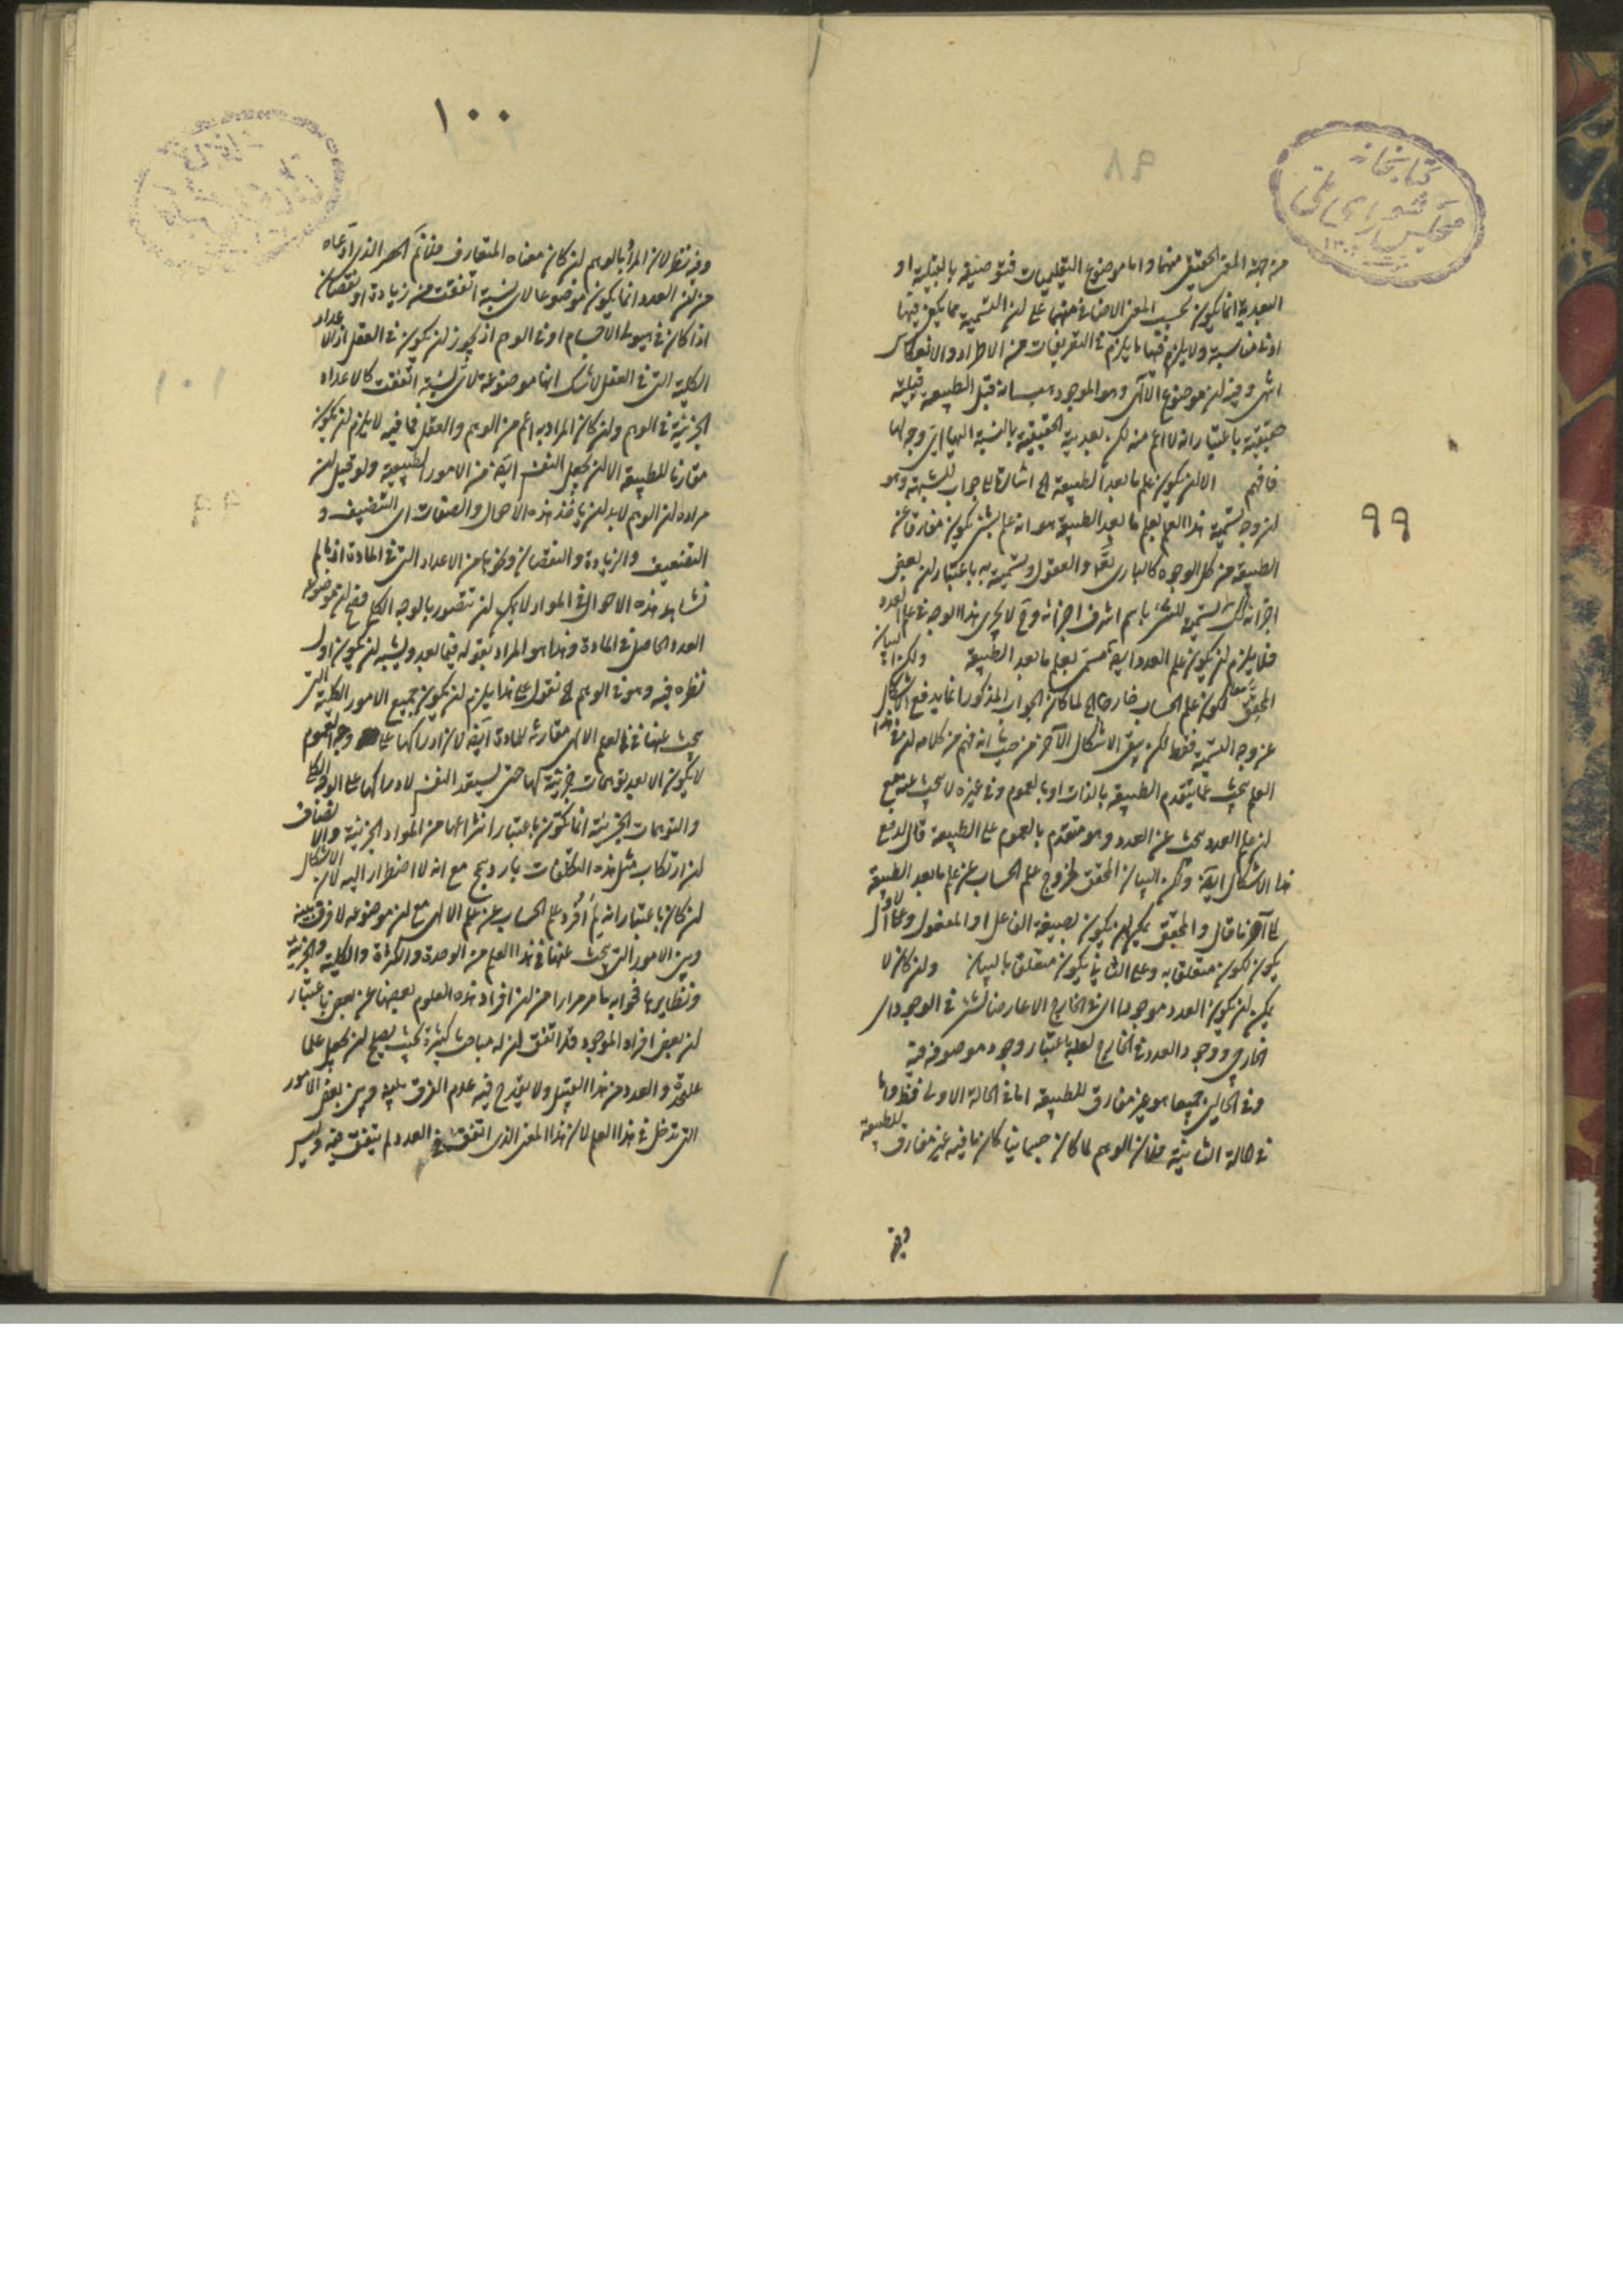 ٩٨
كتابخانه
مجلس شورای ملی
٩٩
من جهة المعنى الحقيقى منهما واما موضوع التعليميات فتوصيفه بالقبلية او
البعدية انما يكون بحسب المعنى الاضافى منهما على ان التسمية مما يكفى فيها
ادنى مناسبة ولا يلزم فيها ما يلزم فى التعريفات من الاطراد والانعكاس
انتهى وفيه ان موضوع الالهى وهو الموجود بما هو قبل الطبيعة قبلية
حقيقية باعتبار انه الاعم منه لكن بعدية الحقيقية بالنسبة الينا اى وجه لها
فافهم الا ان يكون علم ما بعد الطبيعة الخ اشارة الى جواب للشبهة وهو
ان وجه تسمية هذا العلم بعلم ما بعد الطبيعة هو انه علم بشئ يكون مفارقا عن
الطبيعة من كل الوجوه كالبارى تعالى والعقول وتسميته به باعتبار ان بعض
اجزائه كذلك تسمية للشئ باسم اشرف اجزائه وح لا يجرى هذا الوجه فى علم العدد
فلا يلزم ان يكون علم العدد ايضا مسمى بعلم ما بعد الطبيعة ولكن البيان
المحقق لكون علم الحساب خارجا الخ لما كان الجواب المذكور انما يدفع الاشكال
عن وجه التسمية فقط لكن بقى الاشكال الآخر من حيث انه فهم من كلامه ان فى هذا
العلم يبحث عما يتقدم الطبيعة بالذات او بالعموم وفى غيره لا يبحث عنه مع
ان علم العدد يبحث عن العدد وهو متقدم بالعموم على الطبيعة قال لدفع
هذا الاشكال ايضا ولكن البيان المحقق لخروج علم الحساب عن علم ما بعد الطبيعة
الى آخر ما قال والمحقق يمكن ان يكون بصيغة الفاعل او المفعول وعلى الاول
يكون لكون متعلق به وعلى الثانى يكون متعلق بالبيان وان كان لا
يمكن ان يكون العدد موجودا اى فى الخارج الا عارضا لشئ فى الوجود اى
الخارجى ووجود العدد فى الخارج لعله باعتبار وجود موصوفه فيه
وفى الحالين جميعا هو غير مفارق للطبيعة اما فى الحالة الاولى فظ واما
فى حالة الثانية فلان الوهم لما كان جسمانيا كان ما فيه غير مفارق للطبيعة
وفيه
١٠٠
وفيه نظر لان المراد بالوهم ان كان معناه المتعارف فلا نم الحصر الذى ادعاه
من ان العدد انما يكون موضوعا لاى نسبة اتفقت من زيادة او نقصان
اذا كان فى هيولى الاجسام او فى الوهم اذ يجوز ان يكون فى العقل اذ الاعداد
الكلية التى فى العقل لا شك انها موضوعة لاى نسبة اتفقت كالاعداد
الجزئية فى الوهم وان كان المراد به اعم من الوهم والعقل فما فيه لا يلزم ان يكون
مقارنا للطبيعة الا ان يجعل النفس ايضا من الامور الطبيعية ولو قيل ان
مراده ان الوهم لا بد ان ياخذ هذه الاحوال والصفات اى التضعيف و
التنصيف والزيادة والنقصان ونحوها من الاعداد التى فى المادة اذ ما لم
تشاهد هذه الاحوال فى المواد لا يمكن ان تتصور بالوجه الكلى فصح ان موضوعه
العدد الحاصل فى المادة وهذا هو المراد بقوله فيما بعد ويشبه ان يكون اول
نظره فيه وهو فى الوهم الخ نقول على هذا يلزم ان يكون جميع الامور الكلية التى
يبحث عنها فى العلم الالهى مقارنة للمادة ايضا لان ادراكها على وجه العموم
لا يكون الا بعد توهمات جزئية لها حتى يستعد النفس لادراكها على الوجه الكلى
والتوهمات الجزئية انما تكون باعتبار انتزاعها من المواد الجزئية والانصاف
ان ارتكاب مثل هذه التكلفات بارد سمج مع انه لا اضطرار اليه لان الاشكال
ان كان باعتبار انه لم افرد علم الحساب عن علم الالهى مع ان موضوعه لا فرق بينه
وبين الامور التى يبحث عنها فى هذا العلم من الوحدة والكثرة والكلية والجزئية
ونظايرها فجوابه ما مر مرارا من ان افراد هذه العلوم بعضها عن بعض باعتبار
ان بعض افراد الموجود قد اتفق ان له مباحث كثيرة بحيث يصلح ان يجعل علما
علىحدة والعدد من هذا القبيل ولا يقدح فيه عدم الفرق بينه وبين بعض الامور
التى تدخل فى هذا العلم لان هذا المعنى الذى اتفق فى العدد لم يتفق فيه وليس
١٠١